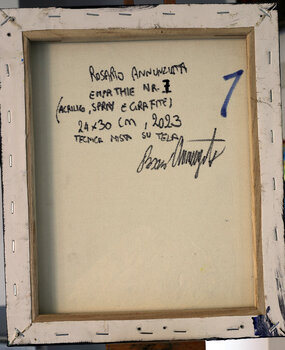 ROSARIO ANNUNZIATA
EMPATHIE NR. 1
(ACRILICO, SPRAY E GRAFITE)
24x30 CM, 2023
TECNICA MISTA SU TELA
1